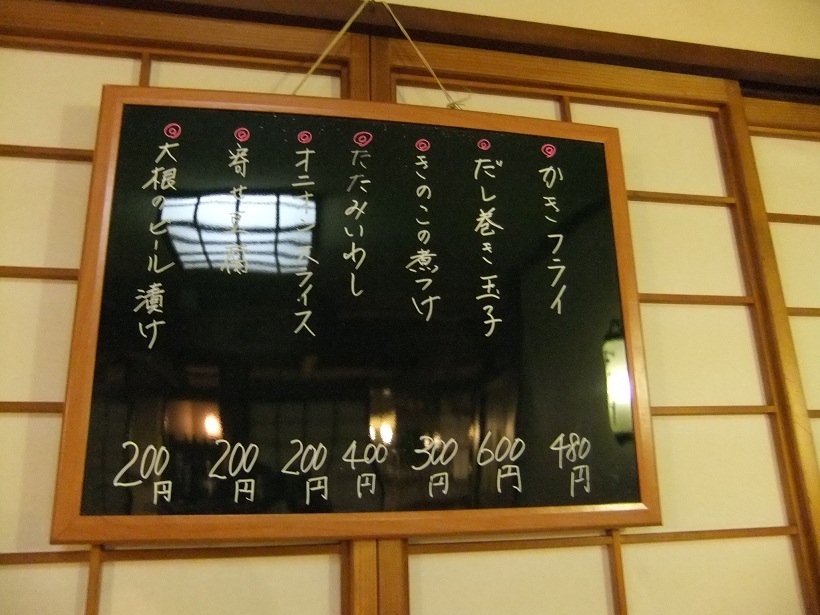 かきフライ 480円
だし巻き玉子 600円
きのこの煮つけ 300円
たたみいわし 400円
オニオンスライス 200円
寄せ豆腐 200円
大根のビール漬け 200円